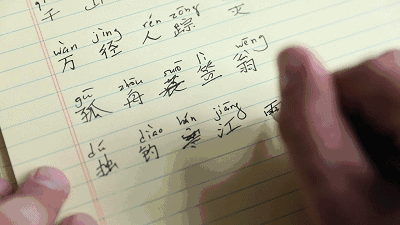 千
wàn jìng rén zōng
万 径 人 踪 灭
gū zhōu suō lì wēng
孤 舟 蓑 笠 翁
dú diào hán jiāng
独 钓 寒 江